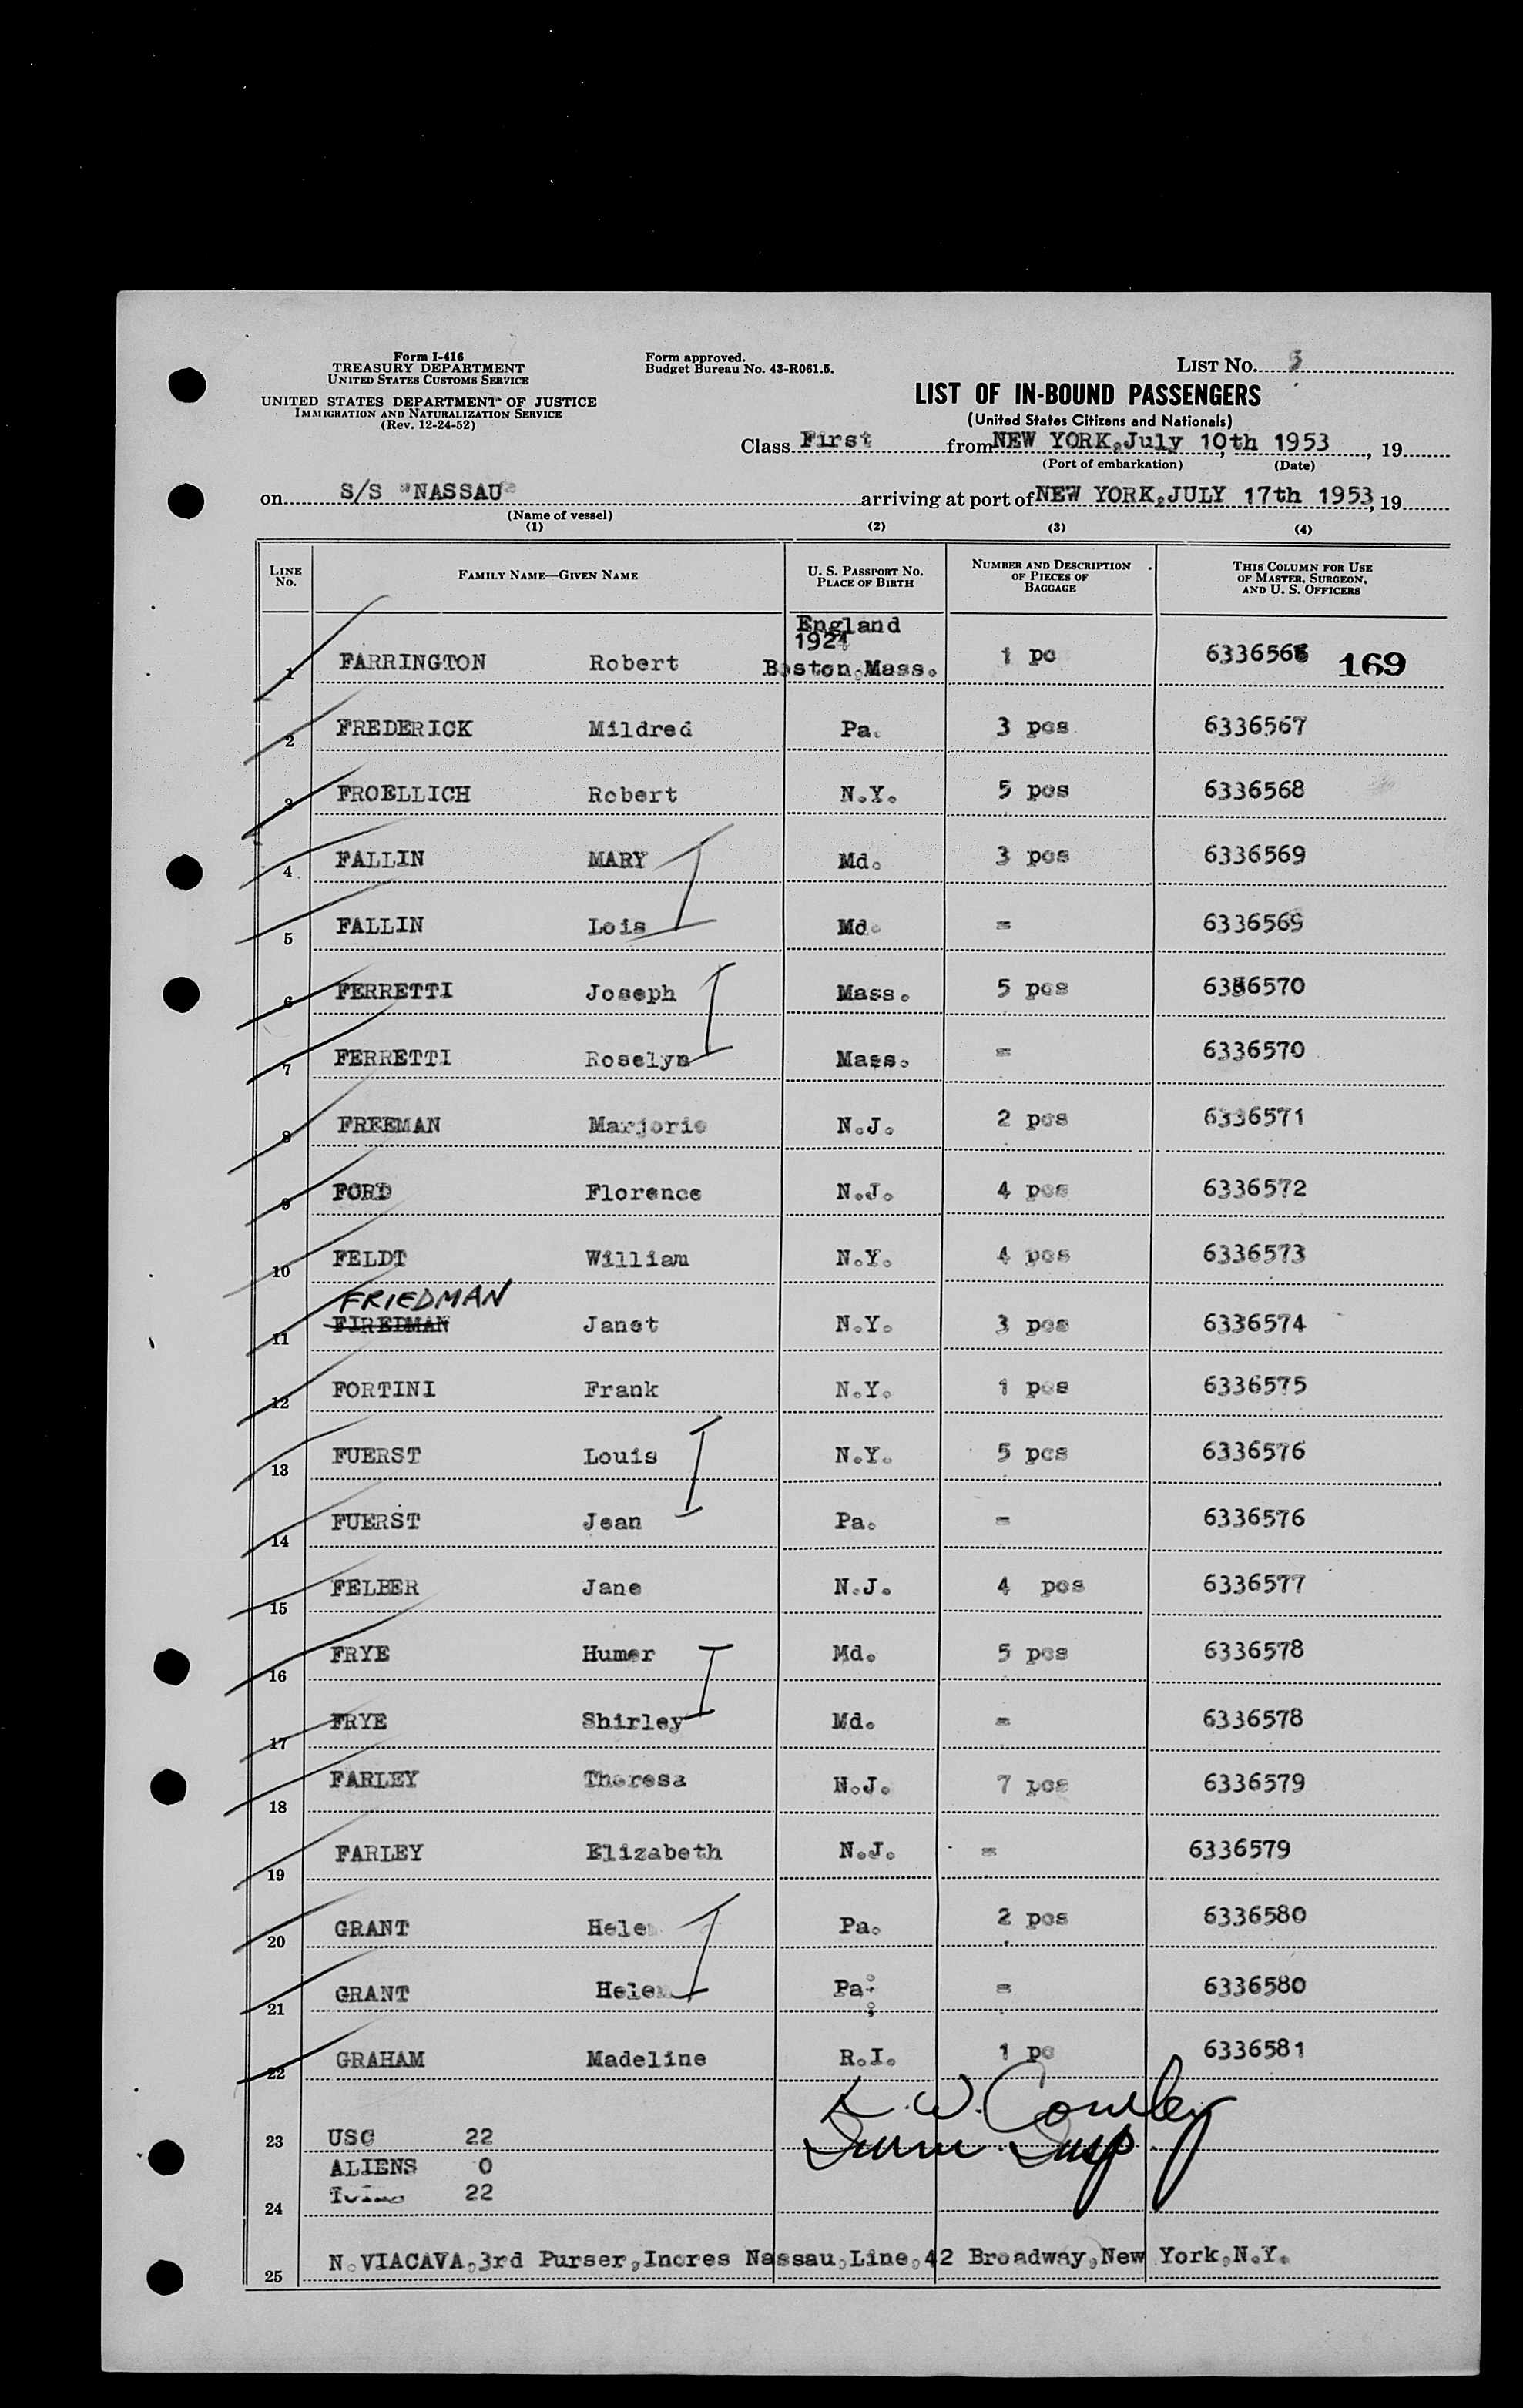 Form I-416
TREASURY DEPARTMENT
UNITED STATES CUSTOMS SERVICE
UNITED STATES DEPARTMENT OF JUSTICE
IMMIGRATION AND NATURALIZATION SERVICE
(Rev. 12-24-52)
Form approved.
Budget Bureau No. 43-R061.5.
LIST NO.
LIST OF IN-BOUND PASSENGERS
(United States Citizens and Nationals)
Class First from NEW YORK, July 10th 1953, 19
(Port of embarkation) (Date)
on S/S "NASSAU" arriving at port of NEW YORK, JULY 17th 1953, 19
(Name of vessel)
(1) (2) (3) (4)
LINE No. FAMILY NAME—GIVEN NAME U. S. PASSPORT NO. PLACE OF BIRTH NUMBER AND DESCRIPTION OF PIECES OF BAGGAGE THIS COLUMN FOR USE OF MASTER, SURGEON, AND U. S. OFFICERS
England
1924
1 FARRINGTON Robert Boston, Mass. 1 pc 6336566 169
2 FREDERICK Mildred Pa. 3 pcs 6336567
3 FROELLICH Robert N.Y. 5 pcs 6336568
4 FALLIN MARY Md. 3 pcs 6336569
5 FALLIN Lois Md. = 6336569
6 FERRETTI Joseph Mass. 5 pcs 6336570
7 FERRETTI Roselyn Mass. = 6336570
8 FREEMAN Marjorie N.J. 2 pcs 6336571
9 FORD Florence N.J. 4 pcs 6336572
10 FELDT William N.Y. 4 pcs 6336573
FRIEDMAN
11 FIREDMAN Janet N.Y. 3 pcs 6336574
12 FORTINI Frank N.Y. 1 pcs 6336575
13 FUERST Louis N.Y. 5 pcs 6336576
14 FUERST Jean Pa. = 6336576
15 FELBER Jane N.J. 4 pcs 6336577
16 FRYE Humer Md. 5 pcs 6336578
17 FRYE Shirley Md. = 6336578
18 FARLEY Theresa N.J. 7 pcs 6336579
19 FARLEY Elizabeth N.J. = 6336579
20 GRANT Helen Pa. 2 pcs 6336580
21 GRANT Helen Pa. = 6336580
22 GRAHAM Madeline R.I. 1 pc 6336581
K. W. Cowley
23 USC 22
Imm. Insp.
ALIENS 0
24 22
25 N. VIACAVA, 3rd Purser, Incres Nassau, Line, 42 Broadway, New York, N.Y.